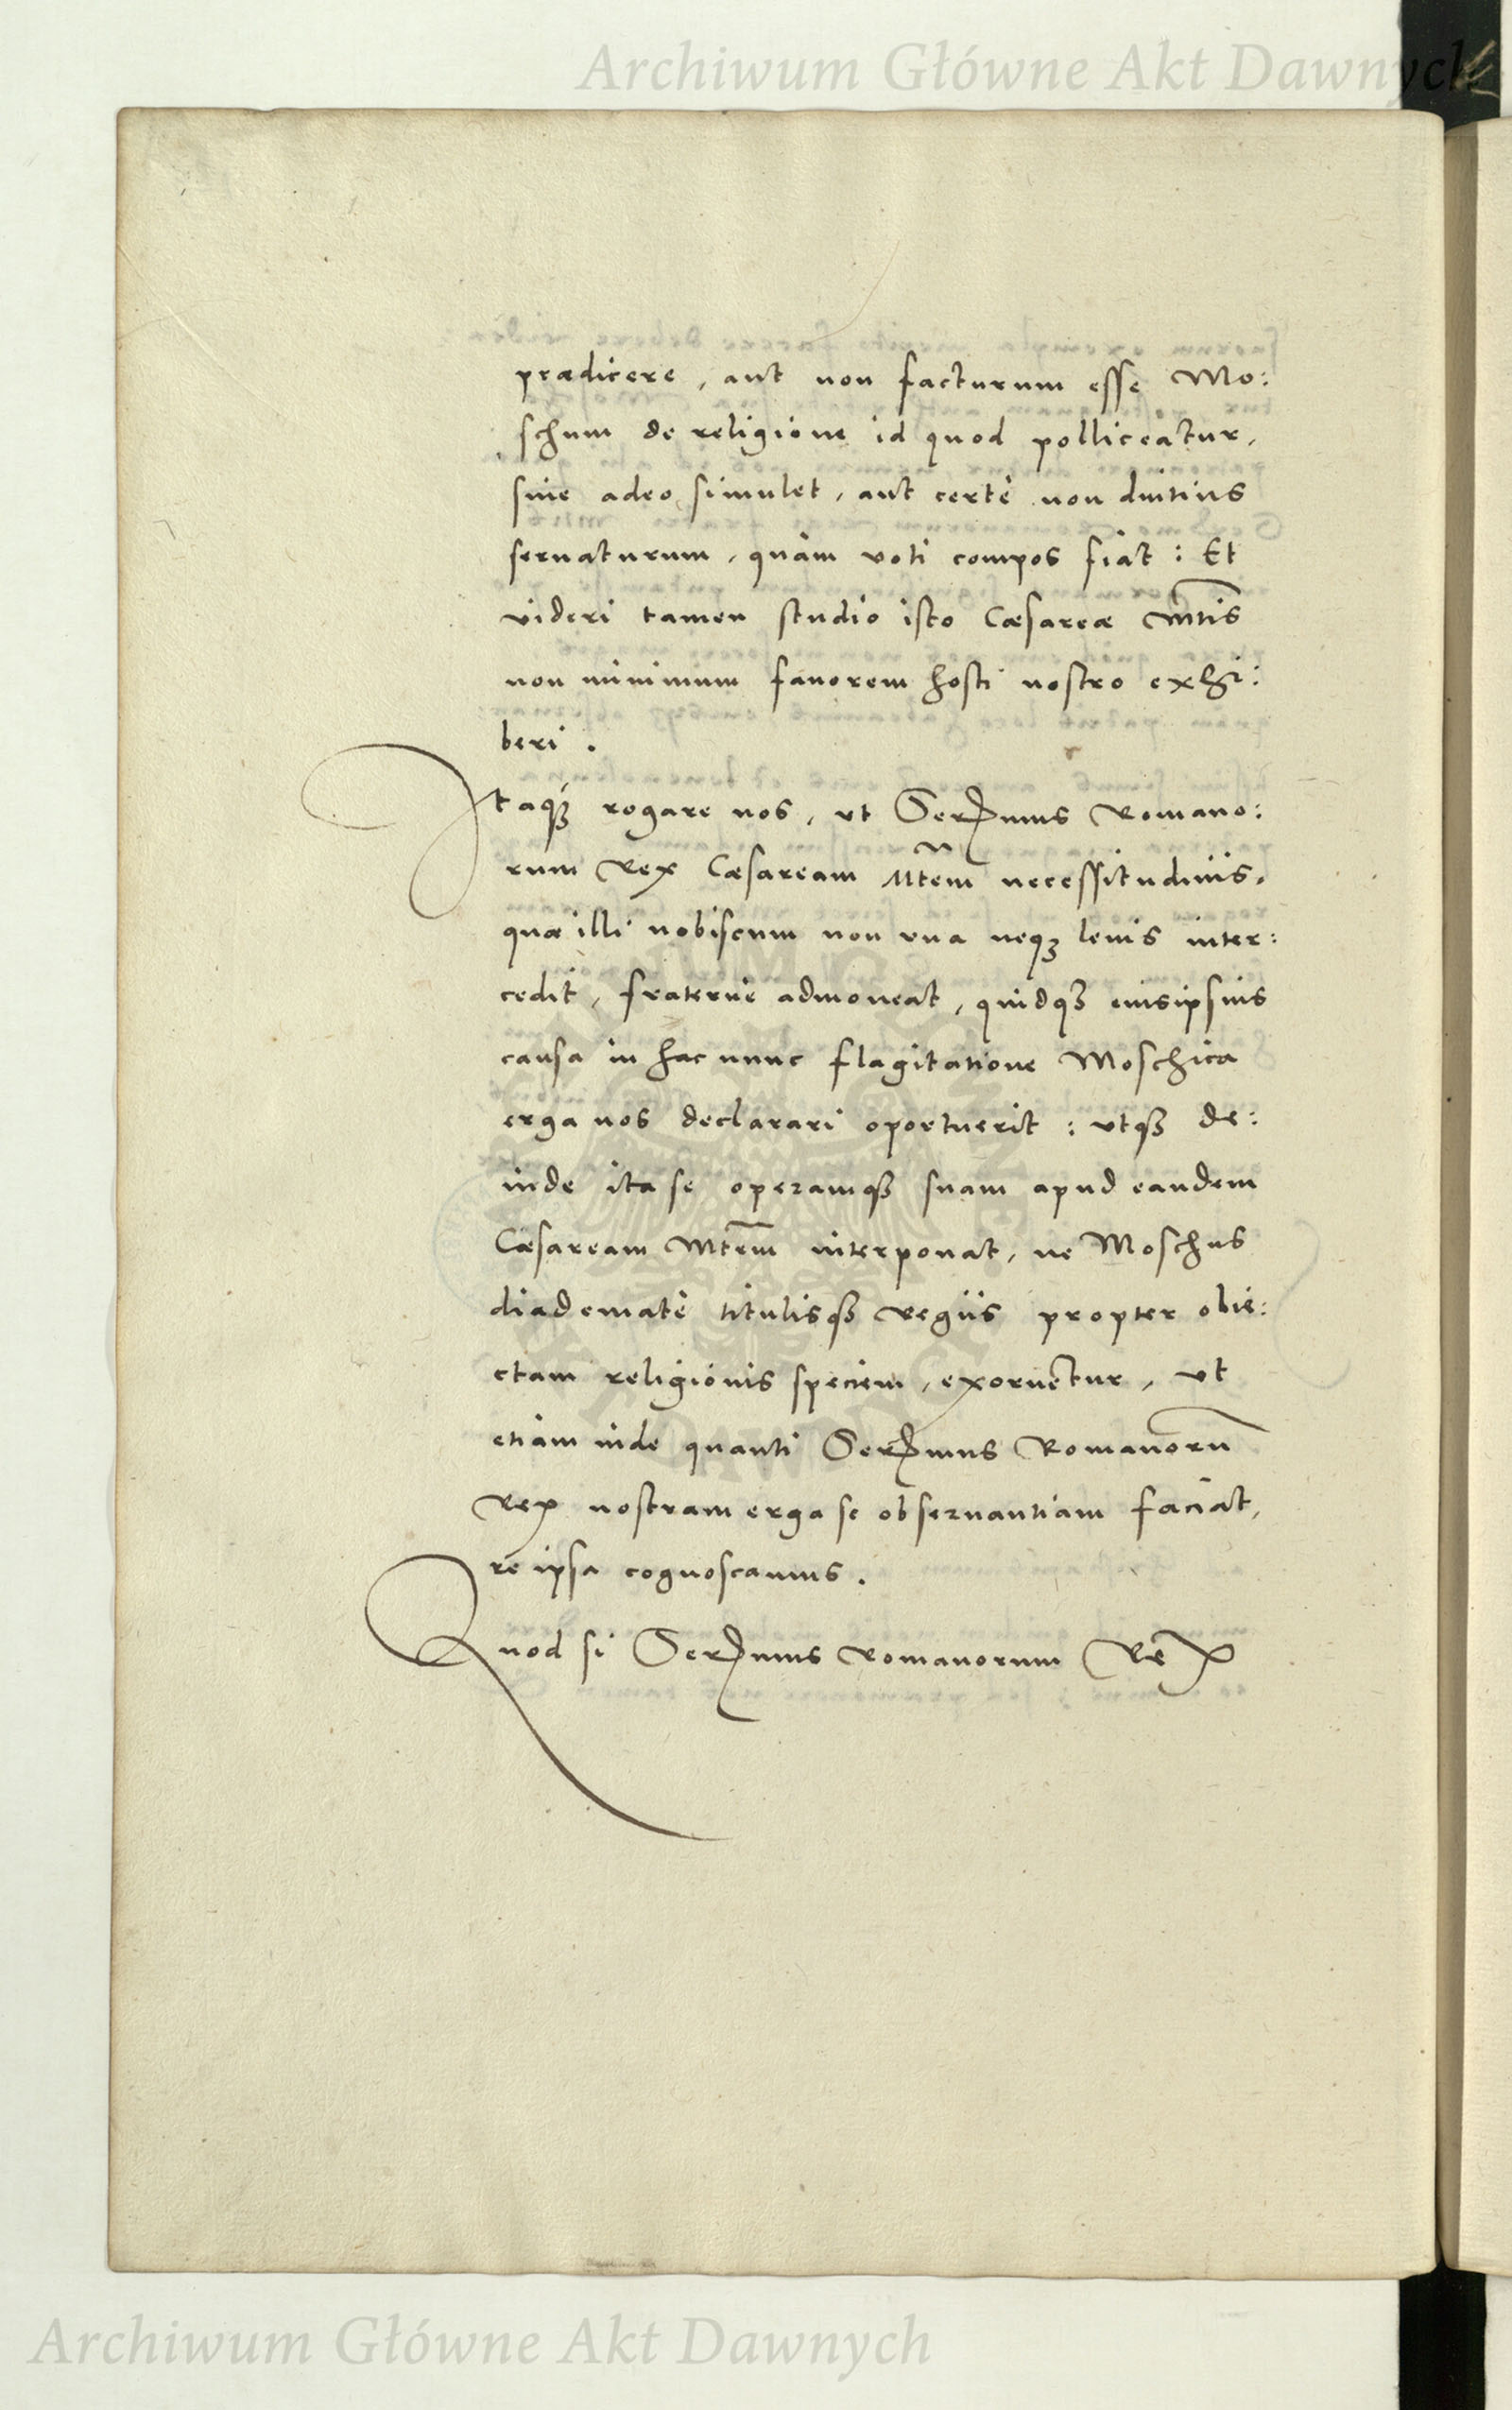 Archiwum Główne Akt Dawnych
prædicere, aut non facturum esse Mo:
schum de religione id quod polliceatur,
siue adeo simulet, aut certè non diutius
seruaturum, quàm voti compos fiat: Et
videri tamen studio isto Cæsareæ Mtis
non minimum fauorem hosti nostro exhi:
beri.
Itaq3 rogare nos, vt Sermus Romano:
rum Rex Cæsaream Mtem necessitudinis,
quæ illi nobiscum non vna neq3 leuis inter:
cedit, fraternè admoneat, quidq3 eiusipsius
causa in hac nunc flagitatione Moschica
erga nos declarari oportuerit: vtq3 de:
inde ita se operamq3 suam apud eandem
Cæsaream Mtem interponat, ne Moschus
diademate titulisq3 regiis propter obie:
ctam religionis speciem, exornetur, vt
etiam inde quanti Sermus Romanorū
Rex nostram erga se obseruantiam faciat,
re ipsa cognoscamus.
Quod si Sermus Romanorum Rex
Archiwum Główne Akt Dawnych